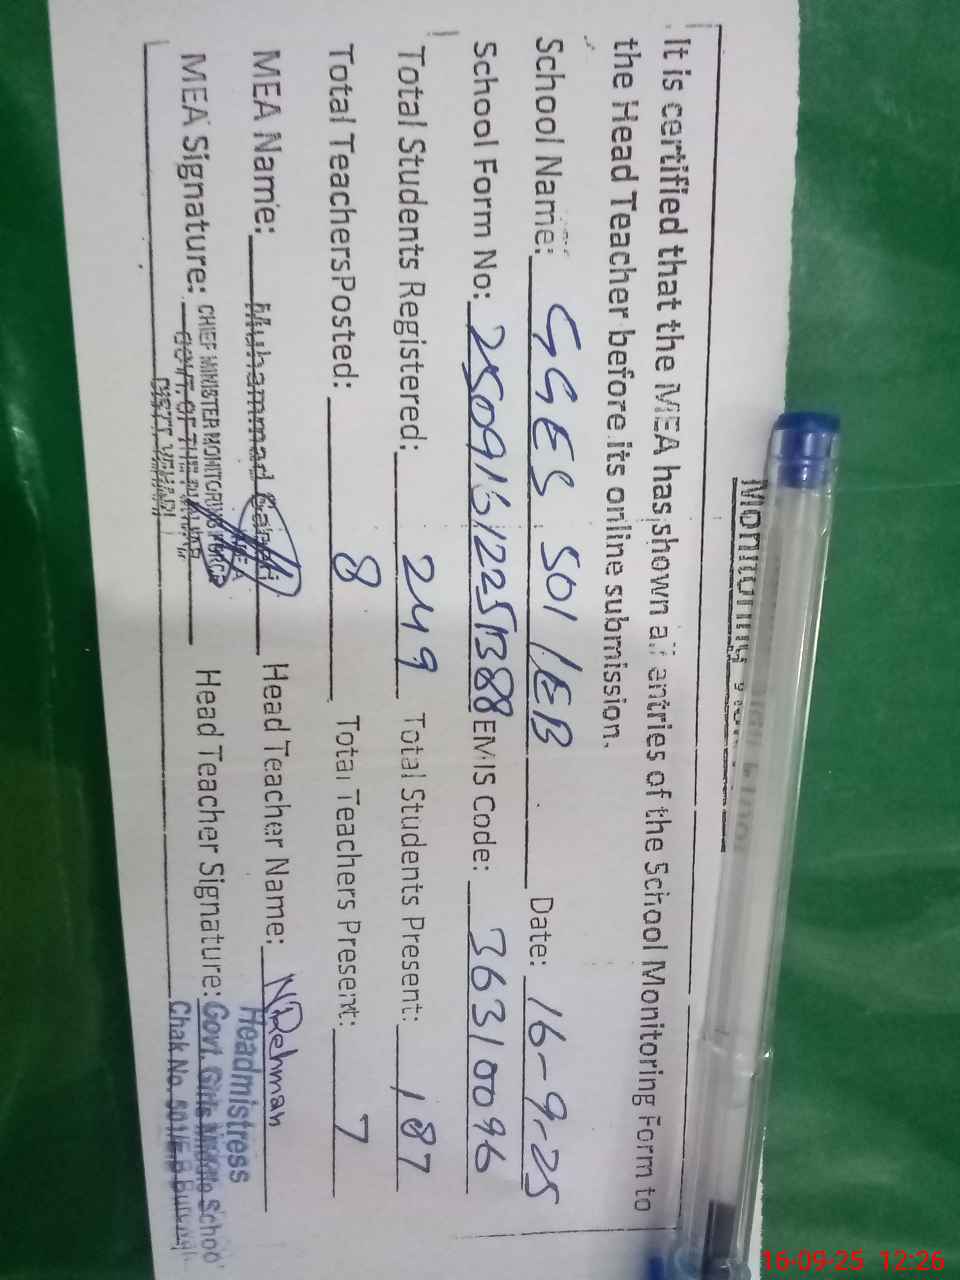 Monitoring
It is certified that the MEA has shown all entries of the School Monitoring Form to
the Head Teacher before its online submission.
School Name: GGES 501/EB Date: 16-9-25
School Form No: EMIS Code: 36310096
Total Students Registered: 249 Total Students Present: 187
Total TeachersPosted: 8 Total Teachers Present: 7
MEA Name: Muhammad Head Teacher Name: NRehman
MEA
MEA Signature: CHIEF MINISTER MONITORING FORCE Head Teacher Signature:
GOVT. OF THE PUNJAB
DISTT. VEHARI
Headmistress
Govt. Girls School
Chak No. 501/E.B
16-09-25 12:26